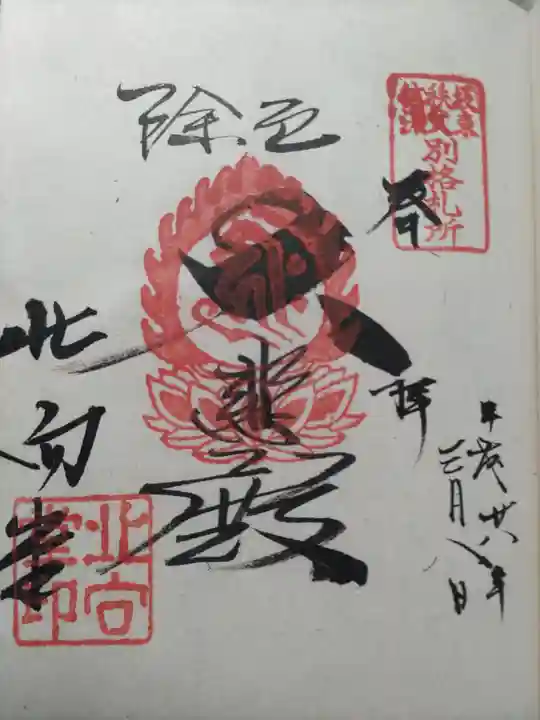 坂東
秩父
別格札所
奉拝
平成廿八年
三月八日
厄除
大悲殿
北向堂
北向
堂印